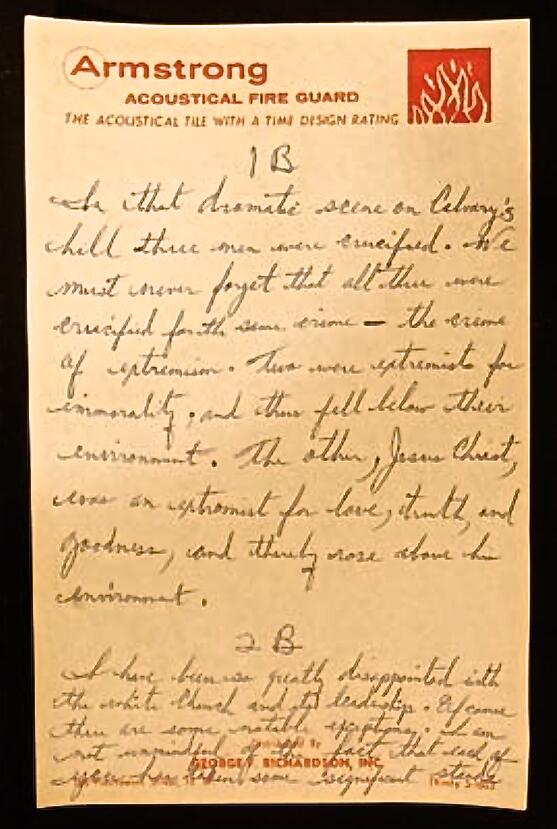 Armstrong
ACOUSTICAL FIRE GUARD
THE ACOUSTICAL TILE WITH A TIME DESIGN RATING
1B
In that dramatic scene on Calvary's
hill three men were crucified. We
must never forget that all three were
crucified for the same crime — the crime
of extremism. Two were extremists for
immorality, and thus fell below their
environment. The other, Jesus Christ,
was an extremist for love, truth, and
goodness, and thereby rose above his
environment.
2B
I have been so greatly disappointed with
the white Church and its leadership. Of course
there are some notable exceptions. I am
not unmindful of the fact that each of
By
GEORGE F. RICHARDSON, INC.
you has taken some significant stands